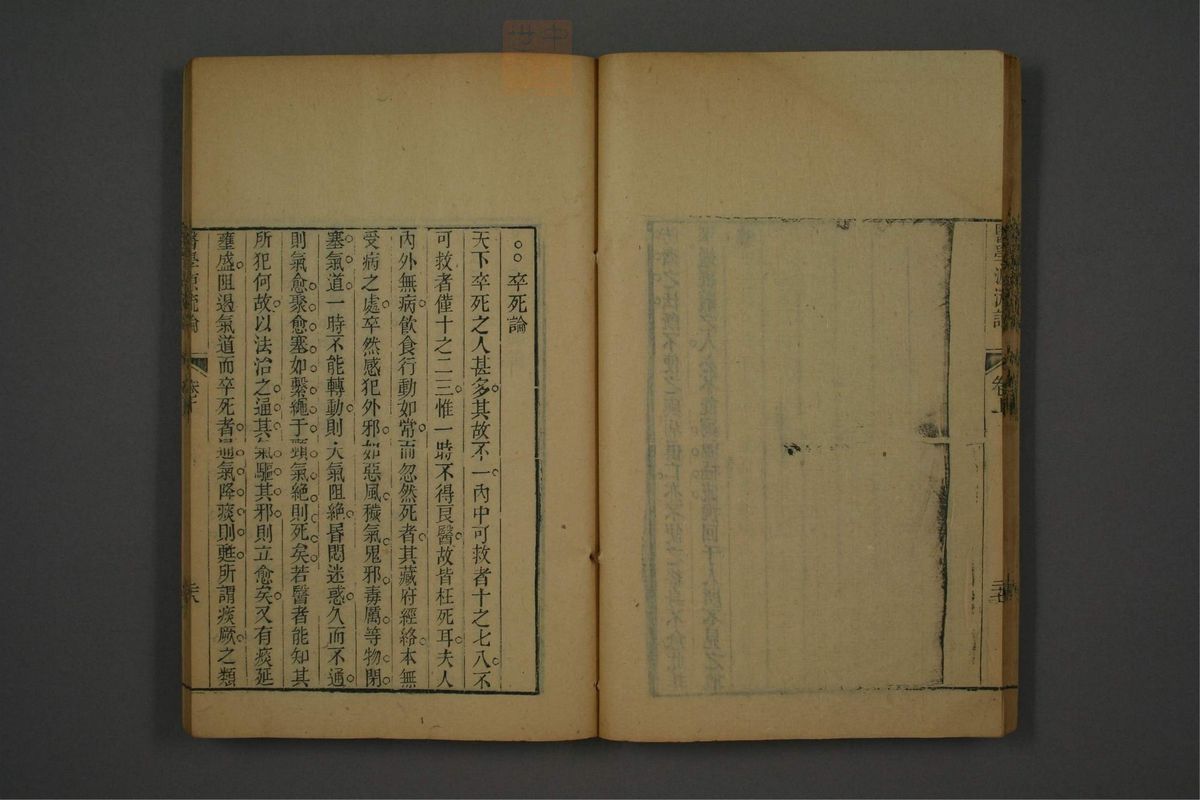 醫學源流論
卷上
卒死論
天下卒死之人甚多其故不一內中可救者十之七八不
可救者僅十之二三惟一時不得良醫故皆枉死耳夫人
內外無病飲食行動如常而忽然死者其藏府經絡本無
受病之處卒然感犯外邪如惡風穢氣鬼邪毒厲等物閉
塞氣道一時不能轉動則大氣阻絕昏悶迷惑久而不通
則氣愈聚愈塞如繫繩于頸氣絕則死矣若醫者能知其
所犯何故以法治之通其氣驅其邪則立愈矣又有痰延
壅盛阻遏氣道而卒死者通氣降痰則甦所謂痰厥之類
醫學源流論
卷上